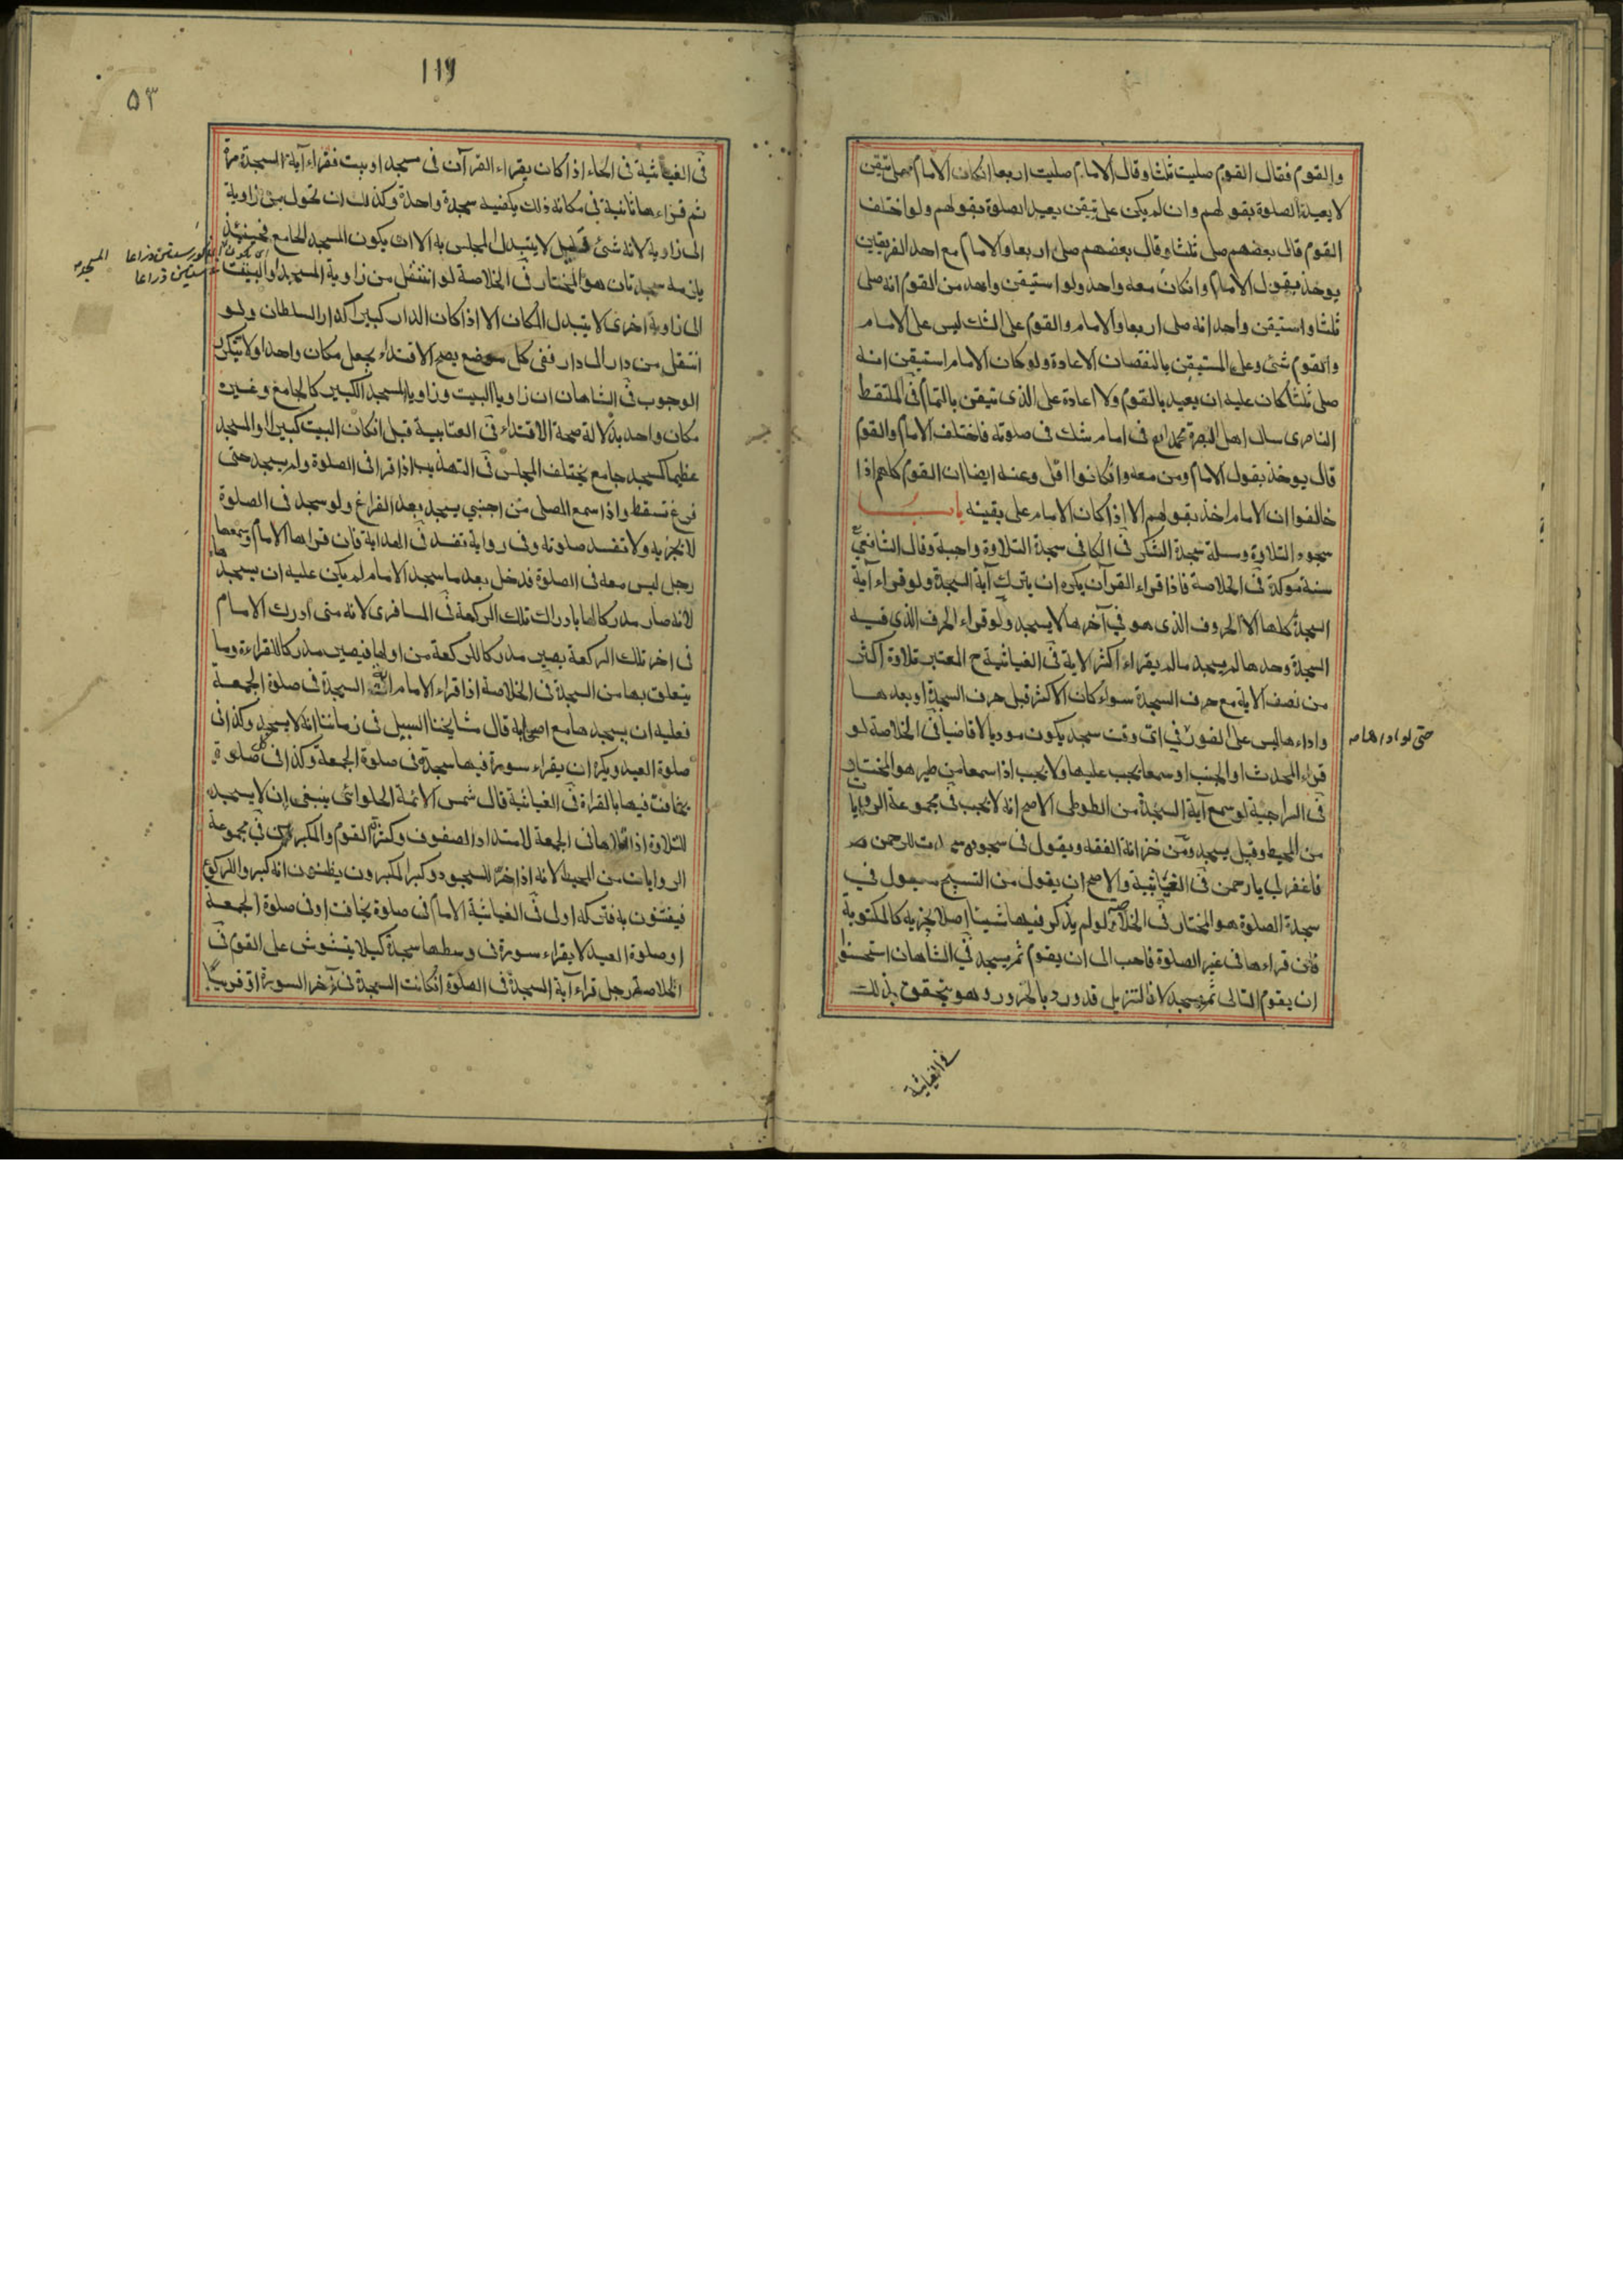 والقوم فقال القوم صليت ثلثا وقال الامام صليت اربعا انكان الامام على تيقن
لا يعيد الصلوة بقولهم وان لم يكن على تيقن يعيد الصلوة بقولهم ولو اختلف
القوم قال بعضهم صلى ثلثا وقال بعضهم صلى اربعا والامام مع احد الفريقين
يوخذ بقول الامام وانكان معه واحد ولو استيقن واحد من القوم انه صلى
ثلثا واستيقن واحد انه صلى اربعا والامام والقوم على الشك ليس على الامام
والقوم شئ وعلى المستيقن بالنقصان الاعادة ولو كان الامام استيقن انه
صلى ثلثا كان عليه ان يعيد بالقوم ولا اعادة على الذى تيقن بالتمام فى الملتقط
الناصرى سال اهل البصرة محمد فى امام شك فى صلوته فاختلف الامام والقوم
قال يوخذ بقول الامام ومن معه وانكانوا اقل وعنه ايضا ان القوم كلهم اذا
خالفوا ان الامام اخذ بقولهم الا اذا كان الامام على يقينه باب
سجود التلاوة وسلة سجدة الشكر فى الكافى سجدة التلاوة واجبة وقال الشافعى
سنة موكدة فى الخلاصة فاذا قراء القرآن يكره ان يترك آية السجدة ولو قراء آية
السجدة كلها الا الحروف الذى هو فى آخرها لا يسجد ولو قراء الحرف الذى فيه
السجدة وحدها لم يسجد ما لم يقراء اكثر الاية فى الغياثية ح المعتبر تلاوة اكثر
من نصف الاية مع حرف السجدة سواء كان الاكثر قبل حرف السجدة او بعدها
واداءها ليس على الفور فى اى وقت سجد يكون موديا لا قاضيا فى الخلاصة لو
حتى لو اداها
قراء المحدث او الجنب او سمعا يجب عليها ولا يجب اذا سمعا من طير هو المختار
فى السراجية لو سمع آية السجدة من الطوطى الاصح انه لا يجب فى مجموعة الروايات
من المحيط وقيل يسجد ومن خزانة الفقه ويقول فى سجوده سجدت للرحمن
فاغفر لى يا رحمن فى الغياثية والاصح ان يقول من التسبيح ما يقول فى
سجدة الصلوة هو المختار فى الخلاصة لو لم يذكر فيها شيئا اصلا يجزيه كالمكتوبة
فان قراءها فى غير الصلوة فاحب الى ان يقوم ثم يسجد فى الشاهان استحسنوا
ان يقوم التالى ثم يسجد لان التنزيل قد ورد بالخرور وهو يتحقق بذلك
فى الغياثية
١١٩
٥٣
فى الغياثية فى الحاء اذا كان يقراء القرآن فى مسجد او بيت فقراء آية السجدة مرة
ثم قراءها ثانية فى مكانه ذلك يكفيه سجدة واحدة وكذلك ان تحول من زاوية
الى زاوية لانه شئ قليل لا يتبدل المجلس به الا ان يكون المسجد الجامع فحينئذ
يلزمه سجدتان هو المختار فى الخلاصة لو انتقل من زاوية المسجد او البيت
الى زاوية اخرى لا يتبدل المكان الا اذا كان الدار كبيرا كدار السلطان ولو
انتقل من دار الى دار ففى كل موضع يصح الاقتداء يجعل مكان واحدا ولا يتكرر
الوجوب فى الشاهان ان زوايا البيت وزوايا المسجد الكبير كالجامع وغيره
مكان واحد بدلالة صحة الاقتداء فى العتابية قيل انكان البيت كبيرا او المسجد
عظيما كمسجد جامع يختلف المجلس فى التهذيب اذا قرا فى الصلوة ولم يسجد حتى
فرغ تسقط واذا سمع المصلى من اجنبي يسجد بعد الفراغ ولو سجد فى الصلوة
لا يجزيه ولا تفسد صلوته وفى رواية تفسد فى الهداية فان قراها الامام وسمعها
رجل ليس معه فى الصلوة فدخل بعد ما سجد الامام لم يكن عليه ان يسجدها
لانه صار مدركا لها بادراك تلك الركعة فى المسافرى لانه متى ادرك الامام
فى اخر تلك الركعة يصير مدركا للركعة من اولها فيصير مدركا للقراءة وما
يتعلق بها من السجدة فى الخلاصة اذا قراء الامام آية السجدة فى صلوة الجمعة
فعليه ان يسجدها مع اصحابه قال مشايخنا السبيل فى زماننا انه لا يسجد وكذا فى
صلوة العيد ويكره ان يقراء سورة فيها سجدة فى صلوة الجمعة وكذا فى كل صلوة
يخافت فيها بالقراة فى الغياثية قال شمس الائمة الحلوائى ينبغى ان لا يسجد
للتلاوة اذا تلاها فى الجمعة لامتداد الصفوف وكثرة القوم والمكبرين فى مجموعة
الروايات من المحيط لانه اذا خر للسجود وكبر المكبرون يظنون انه كبر والركوع
فيفتنون به فتركه اولى فى الغياثية الامام فى صلوة يخافت او فى صلوة الجمعة
او صلوة العيد لا يقراء سورة فى وسطها سجدة كيلا يتشوش على القوم فى
الخلاصة رجل قراء آية السجدة فى الصلوة انكانت السجدة فى آخر السورة او قريبا